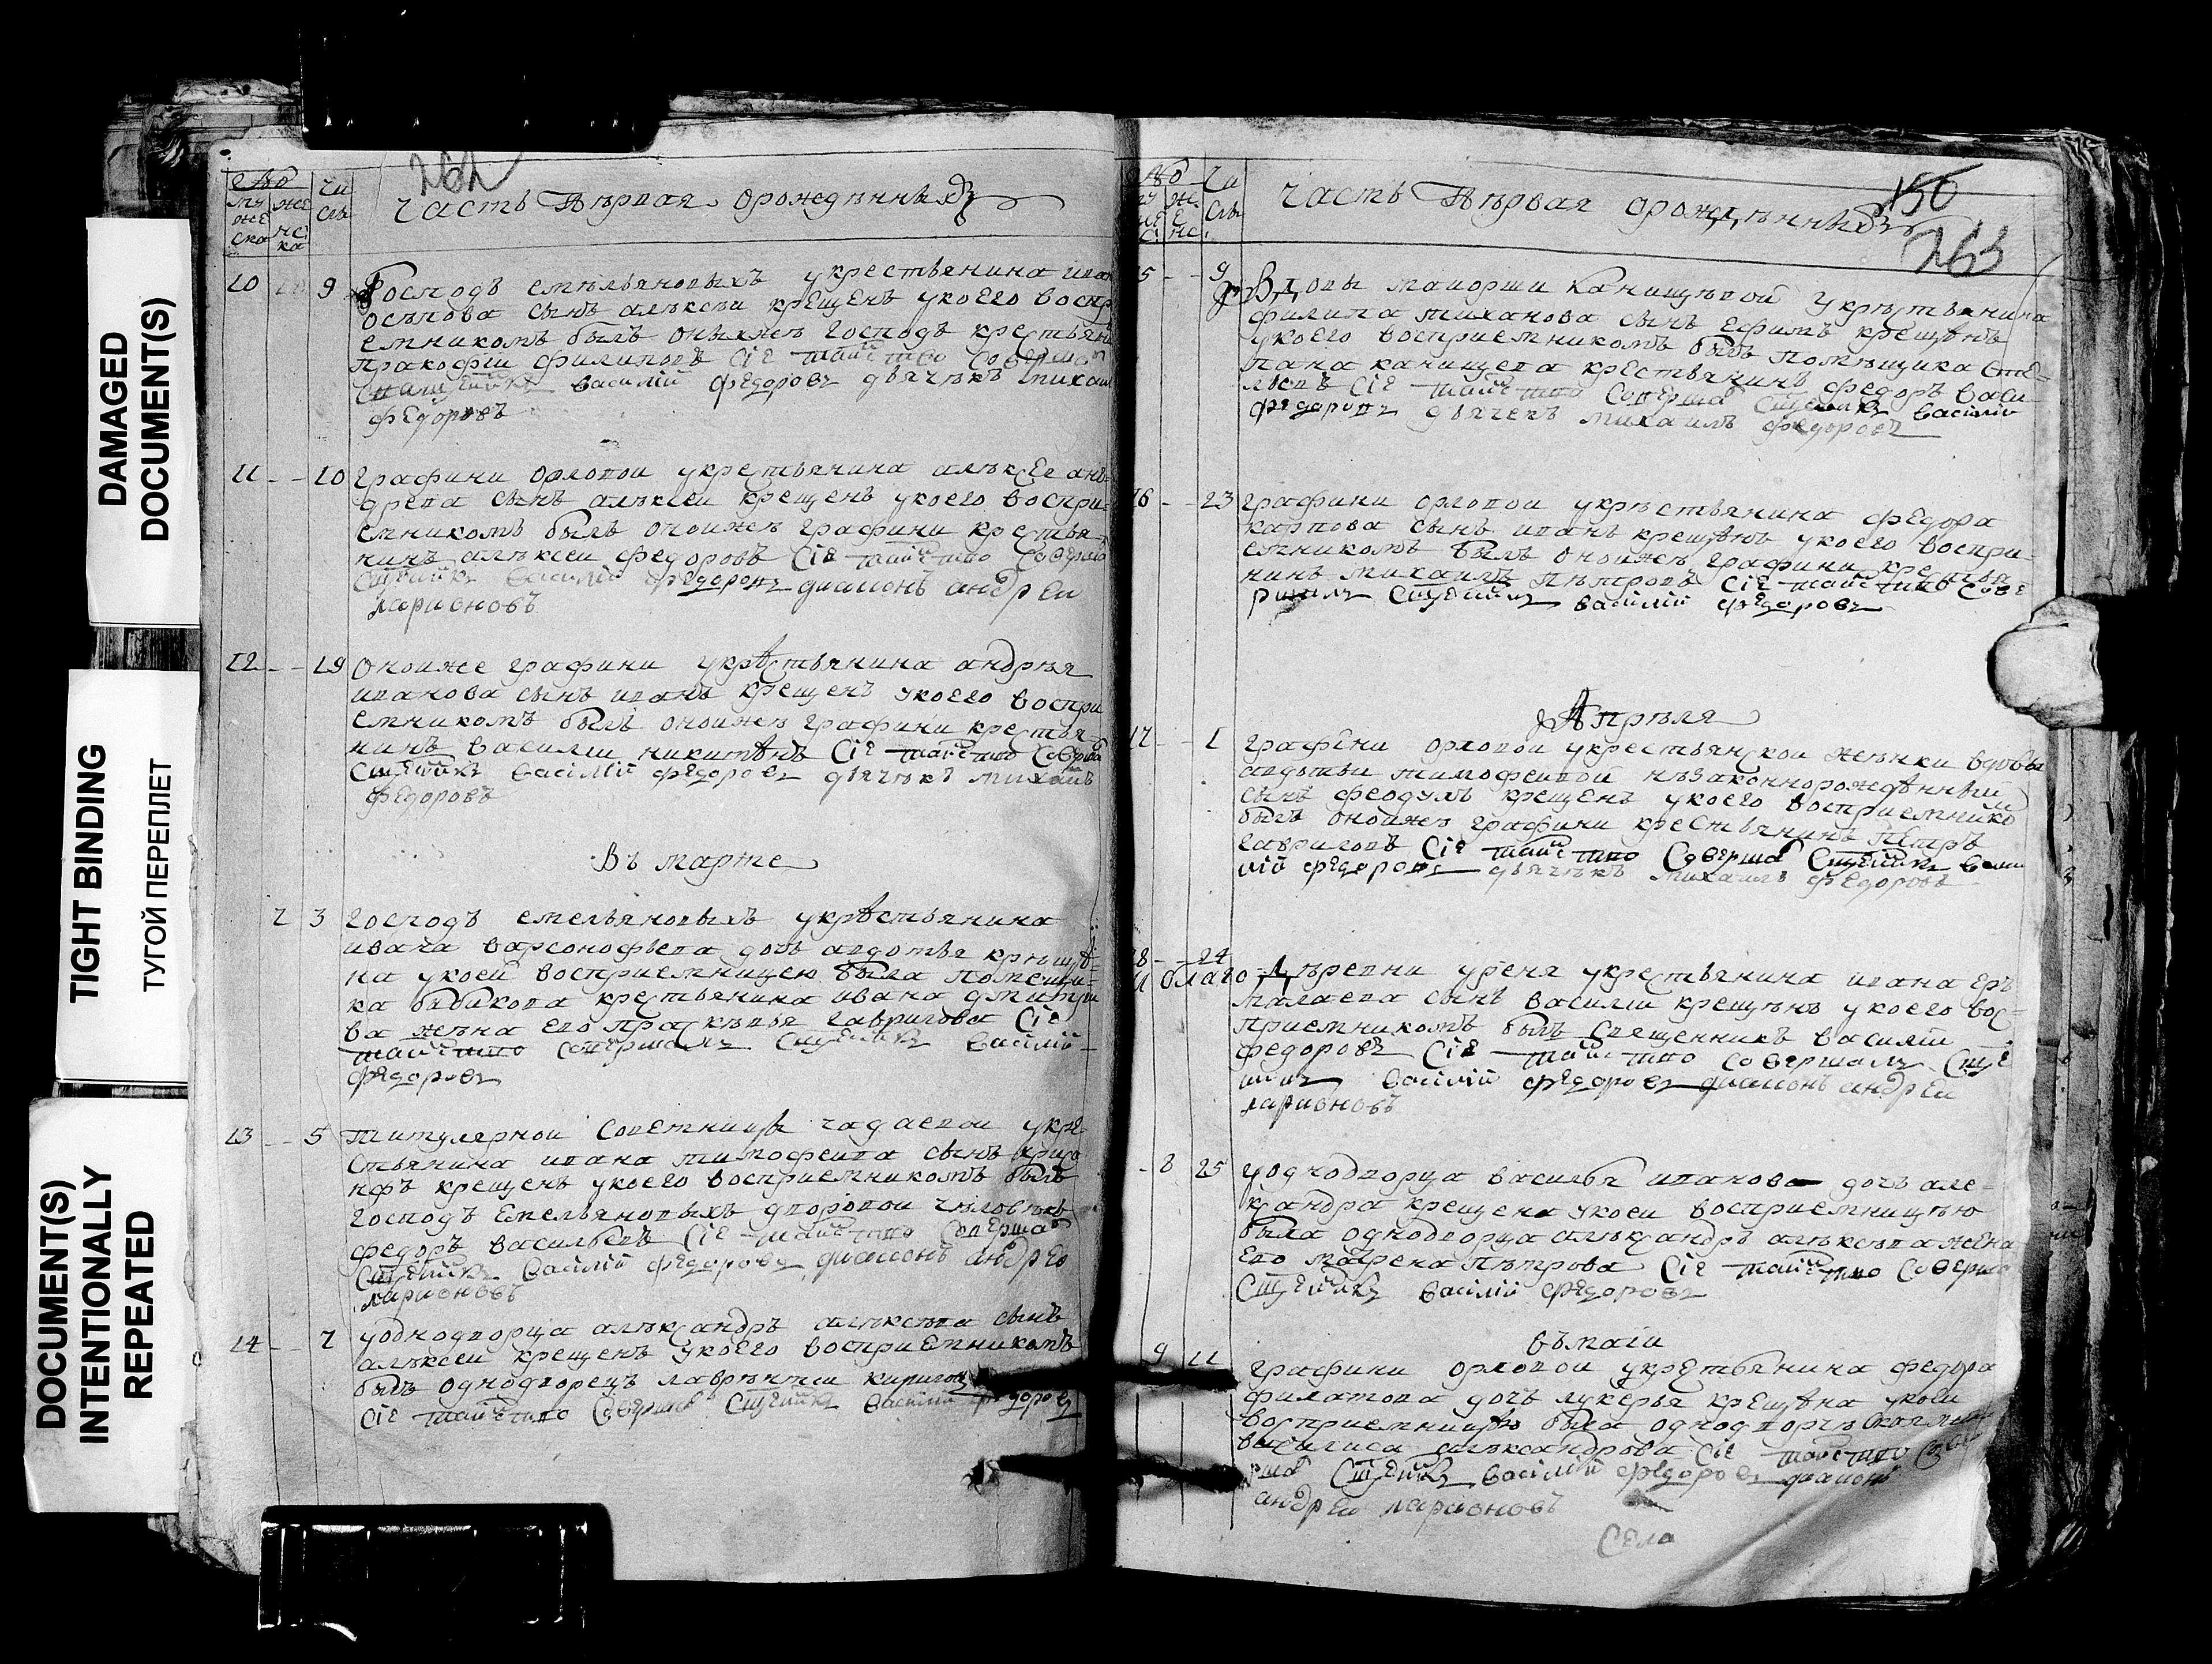 DAMAGED
DOCUMENT(S)
TIGHT BINDING
ТУГОЙ ПЕРЕПЛЕТ
DOCUMENT(S)
INTENTIONALLY
REPEATED
262
№
му
же
ска
же
нс
ка
чи
сла
часть пѣрвая орождѣнныхъ
10 9 Господъ емѣльяновыхъ укрестьянина
осѣпова сынъ алѣксѣи крещенъ укоего воспр
емникомъ былъ оныхже господъ крестьян
пракофіи филиповъ сіе таинство совершал
василій федоровъ дьячѣкъ михаил
федоровъ
11 - - 10 графини орловои укрестьянина алѣксея ан
древа сынъ алѣксеи крещенъ укоего воспри
емникомъ былъ оноиже графини крестья
нинъ алѣксеи федоровъ сіе таинство соверша
василій федоровъ диаконъ андреи
ларионовъ
12 - - 19 оноиже графини укрѣстьянина андрѣя
иванова сынъ иванъ крещенъ укоего воспри
емникомъ былъ оноиже графини крестья
нинъ василии никитѣнъ сіе таинство соверша
василій федоровъ дьячѣкъ михаилъ
федоровъ
въ марте
7 3 господъ емельяновыхъ укрѣстьянина
ивана варсонофьева дочь авдотья крѣщѣ
на укоей восприемницею была помещи
ка бибикова крестьянина ивана дмитри
ва жѣна его праскѣвья гаврилова сіе
таинство совершалъ василій
федоровъ
13 - - 5 титулярнои советницы чадаевои укре
стьянина ивана тимофеива сынъ
крещенъ укоего восприемникомъ былъ
господъ емельяновыхъ дворовои чѣловѣкъ
федоръ васильевъ сіе таинство соверша
василій федоровъ диаконъ андреи
ларионовъ
14 - - 7 уоднодворца алѣксандръ алѣксѣва сынъ
алѣксеи крещенъ укоего восприемникомъ
былъ однодворецъ лаврѣнтеи кирилов
сіе таинство соверша василій федоровъ
№
чи
сла
часть пѣрвая орождѣнныхъ
150
263
15 - - 9 вдовы маиорши канищѣвой укрѣстьянина
филипа тиханова сынъ ефимъ крещѣнъ
укоего восприемникомъ былъ помѣщика сте
пана канищева крестьянинъ федоръ васи
льевъ сіе таинство соверша василій
федоровъ дьячекъ михаилъ федоровъ
16 - - 23 графини орловои укрѣстьянина федора
карпова сынъ иванъ крещѣнъ укоего воспри
емникомъ былъ оноижѣ графини крестья
нинъ михаилъ пѣтровъ сіе таинство сове
ршалъ василій федоровъ
Апрѣля
17 - - 1 графини орловои укрестьянскои жѣнки вдовы
авдотьи тимофеивой нѣзаконнорождѣнныи
сынъ феодулъ крещенъ укоего восприемнико
былъ оноижѣ графини крестьянинъ пѣтръ
гавриловъ сіе таинство соверша васи
лій федоровъ дьячѣкъ михаилъ федоровъ
18 - - 24 дѣревни уреня укрестьянина ивана ер
малаева сынъ василіи крещѣнъ укоего вос
приемникомъ былъ священникъ василій
федоровъ сіе таинство совершалъ
василій федоровъ диаконъ андреи
ларионовъ
- 8 25 уоднодворца василья иванова дочь але
ксандра крещена укоеи восприемницѣю
была однодворца алѣксандръ алѣксѣва жена
его мафрена пѣтрова сіе таинство соверша
василій федоровъ
въ маіи
9 11 графини орловои укрестьянина федора
филатова дочь лукерья крещѣна укоеи
восприемницѣю была
василиса алѣксандрова сіе таинство сове
рша василій федоровъ диаконъ
андреи ларионовъ
села